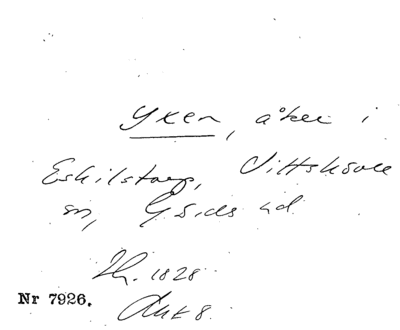 Yxen, åker i
Eskilstorp, Vittskövle
sn, Gärds hd.
1828.
Nr 7926.
Akt 8.